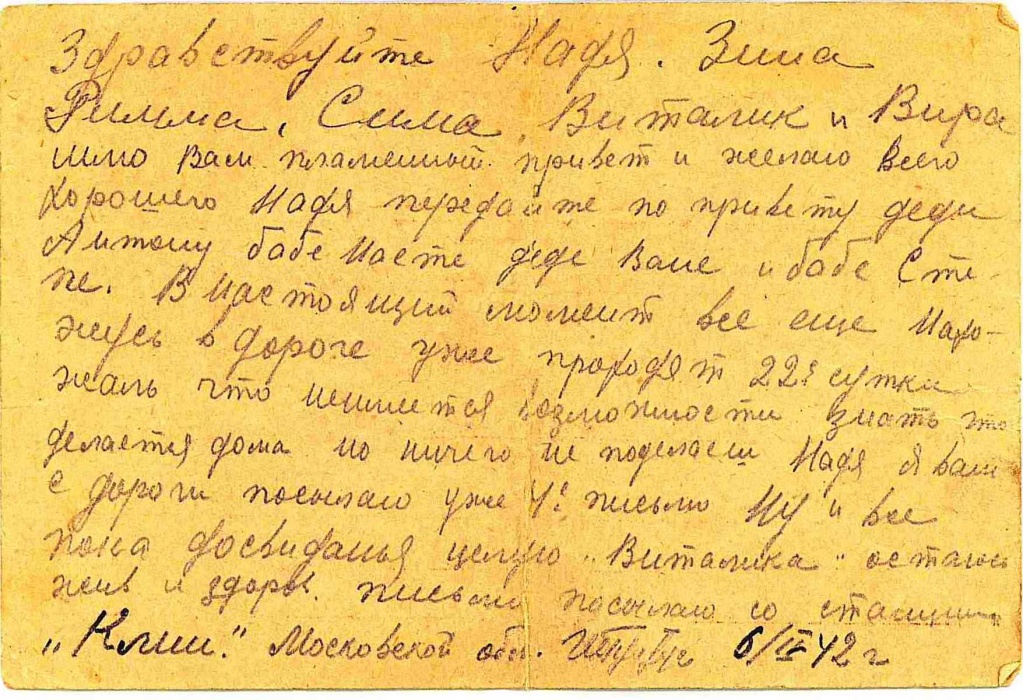 Здравствуйте Надя. Зина
Римма, Сима, Виталик и Вира
шлю Вам пламенный привет и желаю всего
хорошего Надя передайте по привету деди
Антону бабе Насте деде Ване и бабе Сте-
пе. В настоящий момент все еще нахо-
жусь в дороге уже проходят 22е сутки
жаль что неимется возможности знать что
делается дома но ничего не поделаеш Надя я вам
с дороги посылаю уже 4е письмо Ну и все
пока досвиданья целую "Виталика" остаюсь
жив и здоров. письмо посылаю со станции
"Клин". Московской обл. 6/II-42 г